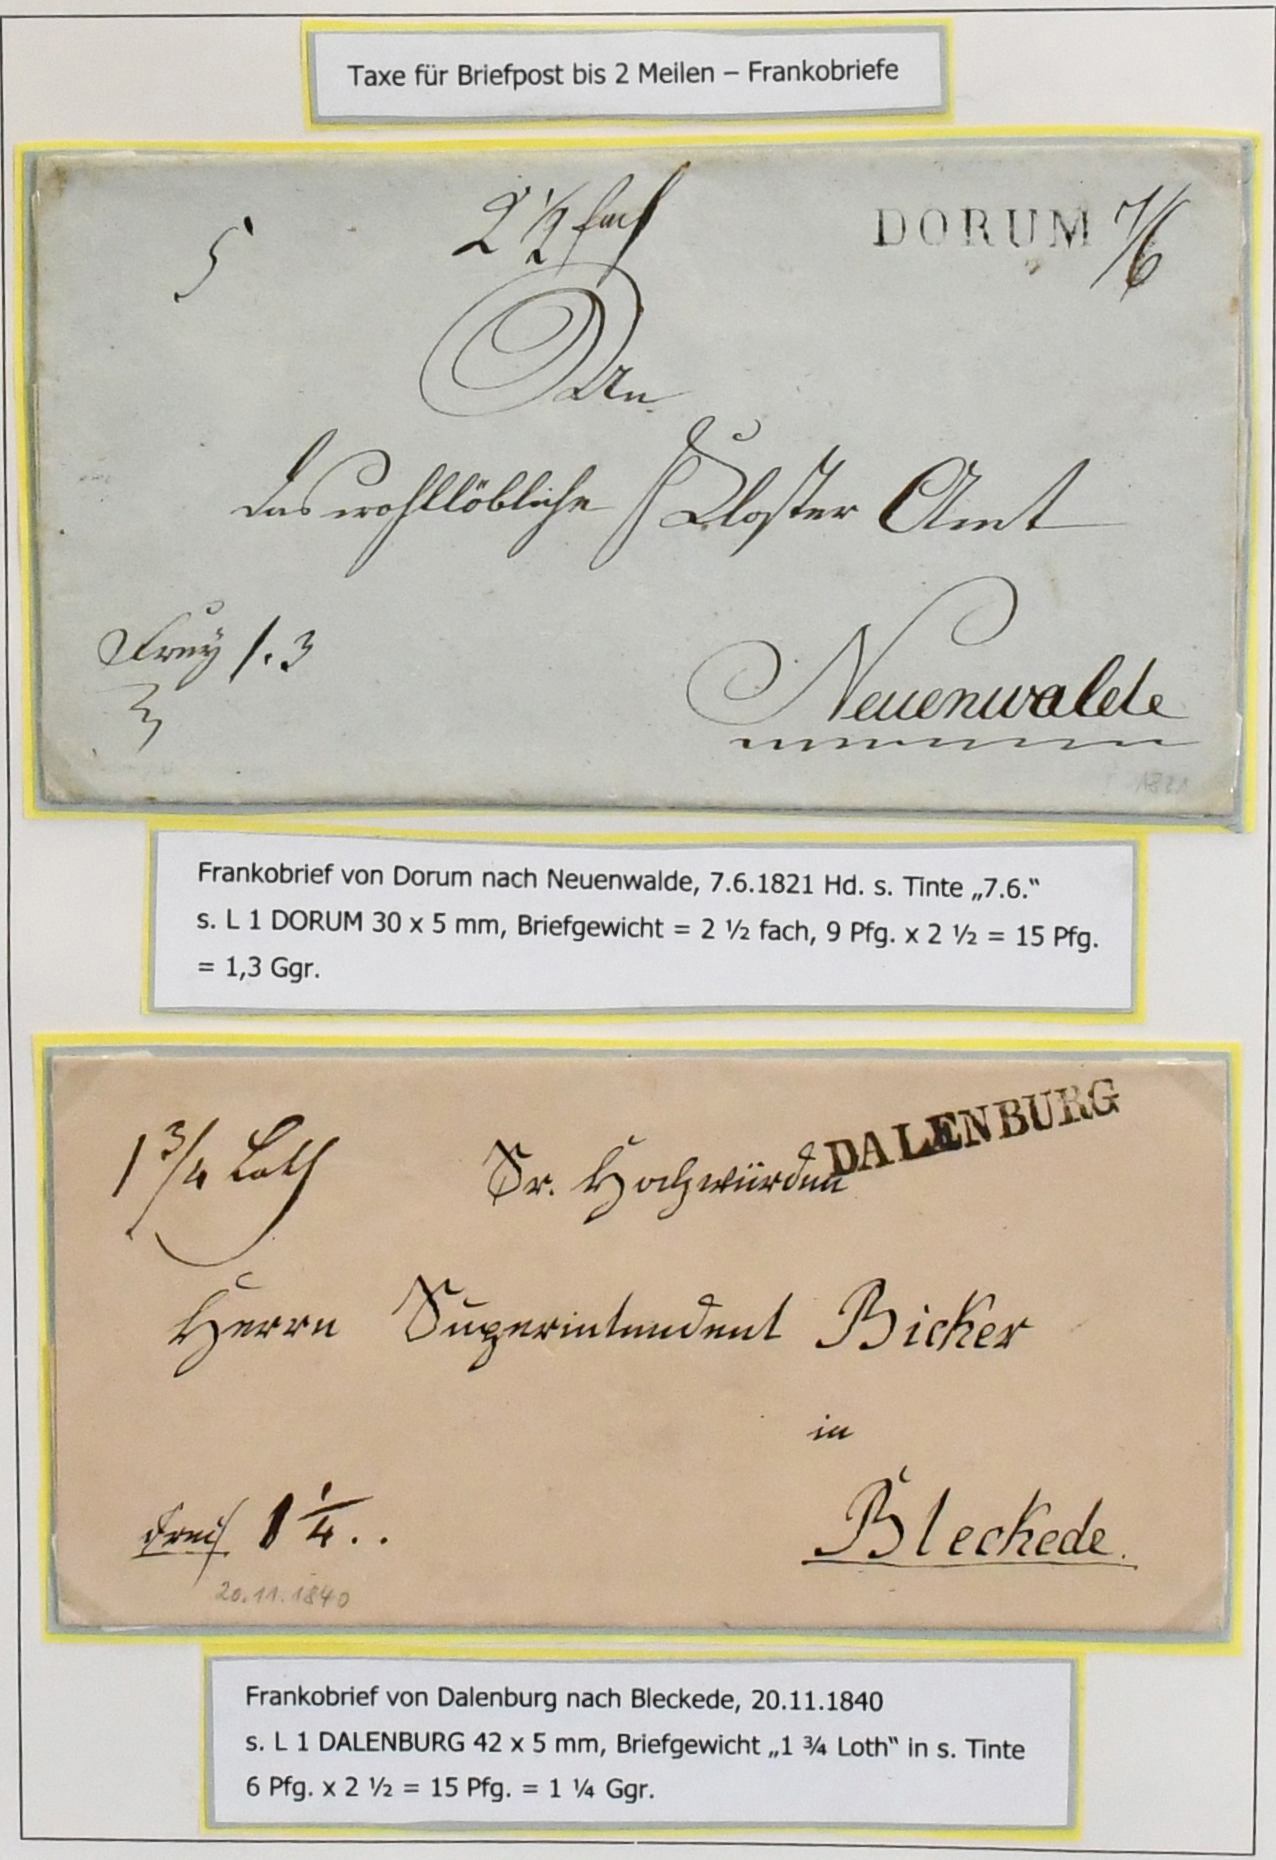 Taxe für Briefpost bis 2 Meilen – Frankobriefe
5
2 ½ fach
DORUM 7/6
An
das wohllöbliche Kloster Amt
Frey 1.3
Neuenwalde
1821
Frankobrief von Dorum nach Neuenwalde, 7.6.1821 Hd. s. Tinte „7.6.“
s. L 1 DORUM 30 x 5 mm, Briefgewicht = 2 ½ fach, 9 Pfg. x 2 ½ = 15 Pfg.
= 1,3 Ggr.
DALENBURG
1 ¾ Loth
Sr. Hochwürden
Herrn Superintendent Bicker
in
frei 1 ¼ . .
Bleckede.
20.11.1840
Frankobrief von Dalenburg nach Bleckede, 20.11.1840
s. L 1 DALENBURG 42 x 5 mm, Briefgewicht „1 ¾ Loth“ in s. Tinte
6 Pfg. x 2 ½ = 15 Pfg. = 1 ¼ Ggr.